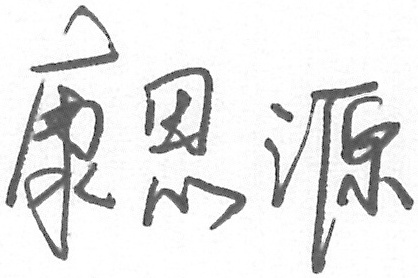 康恩源